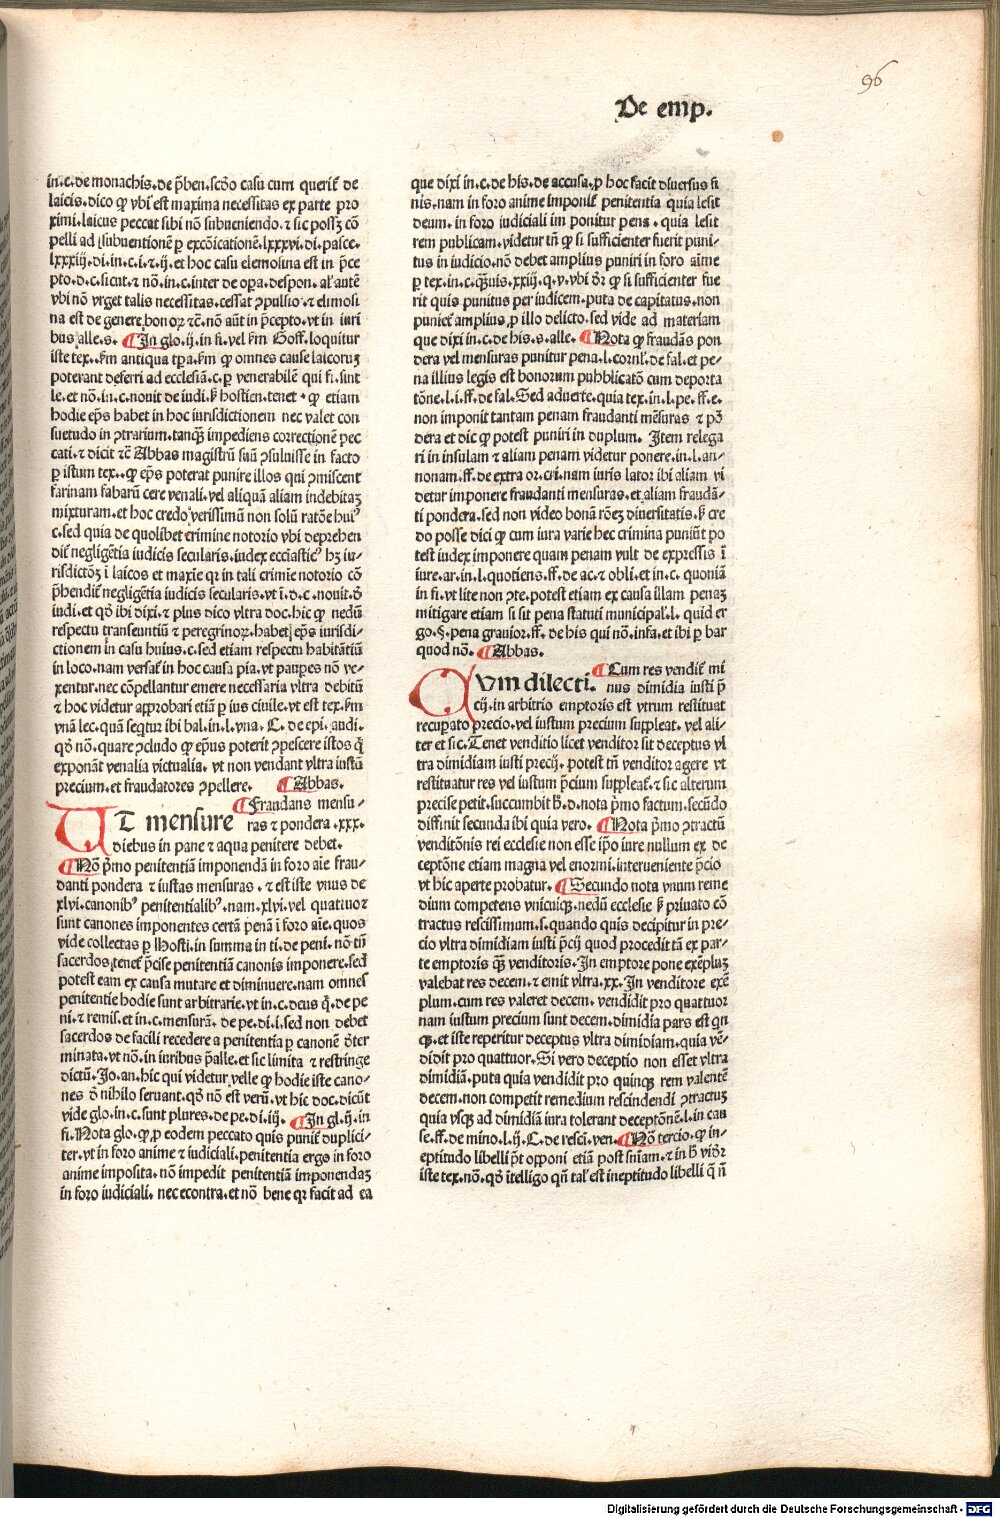 96
De emp.
in.c.de monachis.de p̄ben.scd̄o casu cum querit̄ de
laicis.dico ꝙ vbi est maxima necessitas ex parte pro
ximi.laicus peccat sibi nō subueniendo.⁊ sic possꝫ cō
pelli ad subuentionē ꝑ excōicationē.lxxxvi.di.pasce.
lxxxiij.di.in.c.i.⁊.ij.et hoc casu elemosina est in p̄ce
pto.d.c.sicut.⁊ nō.in.c.inter de oꝑa.despon.al'autē
vbi nō vrget talis necessitas.cessat ↄpulsio.⁊ elimosi
na est de genere bonoꝝ ⁊c̄.nō aūt in p̄cepto.vt in iuri
bus alle.s. ¶In glo.ij.in fi.vel ẜm Goff.loquitur
iste tex..ẜm antiqua tꝑa.ẜm ꝙ omnes cause laicoruꝫ
poterant deferri ad ecclesiā.c.ꝑ venerabilē qui fi.sint
le.et nō.in.c.nouit de iudi.ẜ hostien.tenet.ꝙ etiam
hodie ep̄s habet in hoc iurisdictionem nec valet con
suetudo in ↄtrarium.tanqꝫ impediens correctionē pec
cati.⁊ dicit ⁊c̄ Abbas magistrū suū ↄsuluisse in facto
ꝑ istum tex..ꝙ ep̄s poterat punire illos qui ↄmiscent
farinam fabarū cere venali.vel aliquā aliam indebitaꝫ
mixturam.et hoc credo verissimū non solū ratōe huiꝰ
c.sed quia de quolibet crimine notorio vbi deprehen
dit̄ negligētia iudicis secularis.iudex ecclāsticꝰ hꝫ iu-
risdictōꝫ ī laicos et maxīe qr̄ in tali crimīe notorio cō
p̄hendit̄ negligētia iudicis secularis.vt ī.d.c.nouit.ō
iudi.et qd̄ ibi dixi.⁊ plus dico vltra doc.hic ꝙ nedū
respectu transeuntiū ⁊ peregrinoꝝ.habet ep̄s iurisdi-
ctionem in casu huius.c.sed etiam respectu habitātiū
in loco.nam versat̄ in hoc causa pia.vt pauꝑes nō ve-
xentur.nec cōpellantur emere necessaria vltra debitū
⁊ hoc videtur aꝓbari etiā ꝑ ius ciuile.vt est tex.ẜm
vnā lec.quā seqt̄ur ibi bal.in.l.vna.C.de epi.audi.
qd̄ nō.quare ↄcludo ꝙ ep̄us poterit ↄpescere istos q̄
exponāt venalia victualia.vt non vendant vltra iustū
precium.et fraudatores ↄpellere. ¶Abbas.
¶Fraudans mensu-
UT mensure ras ⁊ pondera.xxx.
diebus in pane ⁊ aqua penitere debet.
¶Nō p̄mo penitentiā imponendā in foro aīe frau-
danti pondera ⁊ iustas mensuras.⁊ est iste vnus de
xlvi.canonibꝰ penitentialibꝰ.nam.xlvi.vel quattuor
sunt canones imponentes certā penā ī foro aīe.quos
vide collectas ꝑ Hosti.in summa in ti.de peni.nō tn̄
sacerdos tenet̄ p̄cise penitentiā canonis imponere.sed
potest eam ex causa mutare et diminuere.nam omnes
penitentie hodie sunt arbitrarie.vt in.c.deus q̄.de pe
ni.⁊ remis.et in.c.mensurā.de pe.di.i.sed non debet
sacerdos de facili recedere a penitentia ꝑ canonē ōter
minata.vt nō.in iuribus p̄alle.et sic limita ⁊ restringe
dictū.Jo.an.hic qui videtur velle ꝙ hodie iste cano-
nes ō nihilo seruant.qd̄ nō est verū.vt hic doc.dicūt
vide glo.in.c.sunt plures.de pe.di.iij. ¶In gl.ij.in
fi.Nota glo.ꝙ ꝓ eodem peccato quis punit̄ duplici-
ter.vt in foro anime ⁊ iudiciali.penitentia ergo in foro
anime imposita.nō impedit penitentiā imponendaꝫ
in foro iudiciali.nec econtra.et nō bene qr̄ facit ad ea
que dixi in.c.de his.de accusa.ꝓ hoc facit diuersus fi
nis.nam in foro anime imponit̄ penitentia quia lesit
deum.in foro iudiciali im ponitur pena.quia lesit
rem publicam.videtur tn̄ ꝙ si sufficienter fuerit puni-
tus in iudicio.nō debet amplius puniri in foro aīme
ꝑ tex.in.c.qꝫuis.xxiij.q.v.vbi dr̄ ꝙ si sufficienter fue
rit quis punitus per iudicem.puta de capitatus.non
puniet̄ amplius ꝓ illo delicto.sed vide ad materiam
que dixi in.c.de his.s.alle. ¶Nota ꝙ fraudās pon
dera vel mensuras punitur pena.l.cornl'.de fal.et pe-
na illius legis est bonorum pubblicatō cum deporta
tōne.l.i.ff.de fal.Sed aduerte.quia tex.in.l.pe.ff.e.
non imponit tantam penam fraudanti mēsuras ⁊ pō
dera et dic ꝙ potest puniri in duplum. Item relega
ri in insulam ⁊ aliam penam videtur ponere.in.l.an-
nonam.ff.de extra or.cri.nam iuris lator ibi aliam vi
detur imponere fraudanti mensuras.et aliam fraudā-
ti pondera.sed non video bonā rōeꝫ diuersitatis.ẜ cre
do posse dici ꝙ cum iura varie hec crimina puniūt po
test iudex imponere quam penam vult de expressis ī
iure.ar.in.l.quotiens.ff.de ac.⁊ obli.et in.c.quoniā
in fi.vt lite non ↄte.potest etiam ex causa illam penaꝫ
mitigare etiam si sit pena statuti municipal'.l.quid er
go.§.pena grauior.ff.de his qui nō.infa.et ibi ꝑ bar
quod nō. ¶Abbas.
¶Cum res vendit̄ mi
CVm dilecti. nus dimidia iusti p̄
cij.in arbitrio emptoris est vtrum restituat
recuꝑato precio.vel iustum precium suppleat.vel ali-
ter et sic.Tenet venditio licet venditor sit deceptus vl
tra dimidiam iusti precij.potest tn̄ venditor agere vt
restituatur res vel iustum p̄cium suppleat̄.⁊ sic alterum
precise petit.succumbit b̄.d.nota p̄mo factum.secūdo
diffinit secunda ibi quia vero. ¶Nota p̄mo ↄtractū
venditōnis rei ecclesie non esse ip̄o iure nullum ex de
ceptōne etiam magna vel enormi.interueniente p̄cio
vt hic aperte probatur. ¶Secundo nota vnum reme
dium competens vnicuiqꝫ.nedū ecclesie ẜ priuato cō
tractus rescissimum.s.quando quis decipitur in pre-
cio vltra dimidiam iusti p̄cij quod procedit tā ex par-
te emptoris qꝫ venditoris.In emptore pone exēpluꝫ
valebat res decem.⁊ emit vltra.xx.In venditore exē
plum.cum res valeret decem.vendidit pro quattuor
nam iustum precium sunt decem.dimidia pars est qn̄
qꝫ.et iste reperitur deceptus vltra dimidiam.quia vē-
didit pro quattuor.Si vero deceptio non esset vltra
dimidiā.puta quia vendidit pro quinqꝫ rem valentē
decem.non competit remedium rescindendi ↄtractuꝫ
quia vsqꝫ ad dimidiā iura tolerant deceptōnē.l.in cau
se.ff.de mino.l.ij.C.de resci.ven.¶Nō tercio.ꝙ in-
eptitudo libelli p̄t opponi etiā post sn̄iam.⁊ in b̄ vidr̄
iste tex.nō.qd̄ ītelligo qn̄ tal' est ineptitudo libelli q̄ n̄
Digitalisierung gefördert durch die Deutsche Forschungsgemeinschaft - DFG